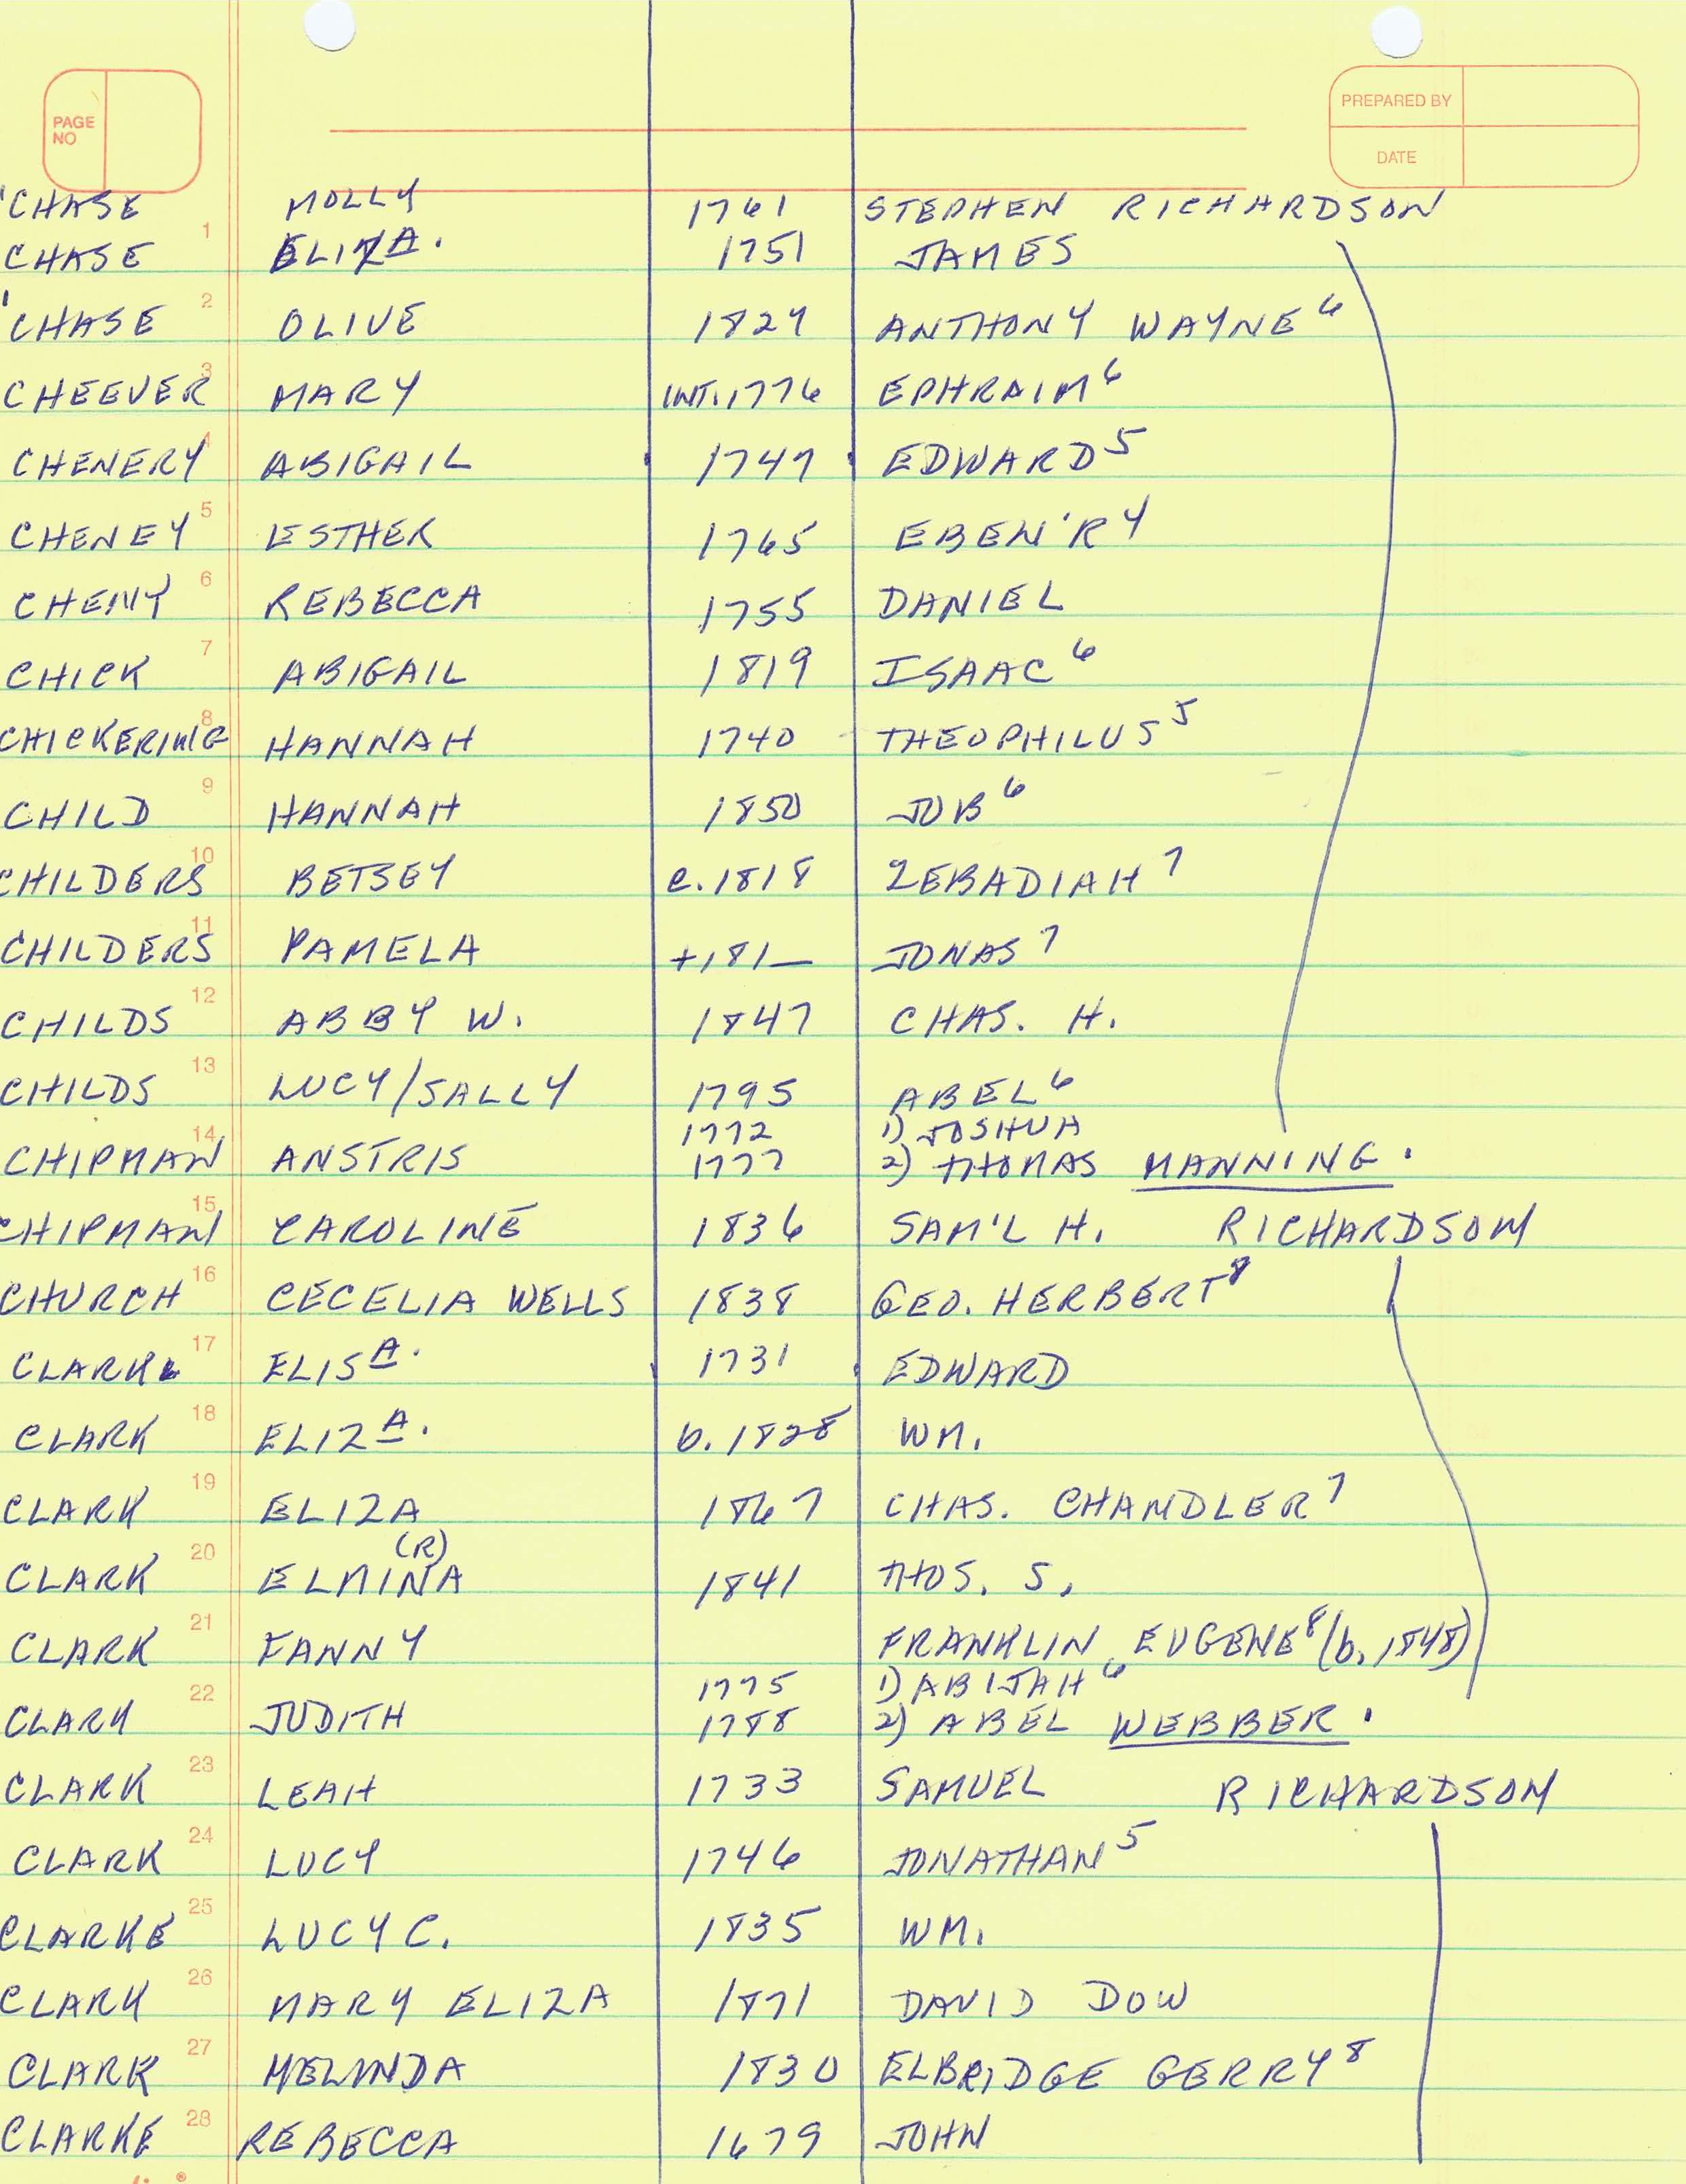 PAGE NO
PREPARED BY
DATE
CHASE MOLLY 1761 STEPHEN RICHARDSON
1 CHASE ELIZA. 1751 JAMES
2 CHASE OLIVE 1827 ANTHONY WAYNE 6
3 CHEEVER MARY INT. 1776 EPHRAIM 6
4 CHENERY ABIGAIL 1747 EDWARD 5
5 CHENEY ESTHER 1765 EBEN'R 4
6 CHENY REBECCA 1755 DANIEL
7 CHICK ABIGAIL 1819 ISAAC 6
8 CHICKERING HANNAH 1740 THEOPHILUS 5
9 CHILD HANNAH 1850 JOB 6
10 CHILDERS BETSEY c. 1818 ZEBADIAH 7
11 CHILDERS PAMELA +181_ JONAS 7
12 CHILDS ABBY W. 1847 CHAS. H.
13 CHILDS LUCY/SALLY 1795 ABEL 6
1772 1) JOSHUA
14 CHIPMAN ANSTRIS 1777 2) THOMAS MANNING.
15 CHIPMAN CAROLINE 1836 SAM'L H. RICHARDSON
16 CHURCH CECELIA WELLS 1838 GEO. HERBERT 8
17 CLARKE ELISA. 1731 EDWARD
18 CLARK ELIZA. b. 1828 WM.
19 CLARK ELIZA 1867 CHAS. CHANDLER 7
(R)
20 CLARK ELMINA 1841 THOS. S.
21 CLARK FANNY FRANKLIN EUGENE 8 (b. 1848)
1775 1) ABIJAH 6
22 CLARK JUDITH 1788 2) ABEL WEBBER.
23 CLARK LEAH 1733 SAMUEL RICHARDSON
24 CLARK LUCY 1746 JONATHAN 5
25 CLARKE LUCY C. 1835 WM.
26 CLARK MARY ELIZA 1871 DAVID DOW
27 CLARK MELINDA 1830 ELBRIDGE GERRY 8
28 CLARKE REBECCA 1679 JOHN